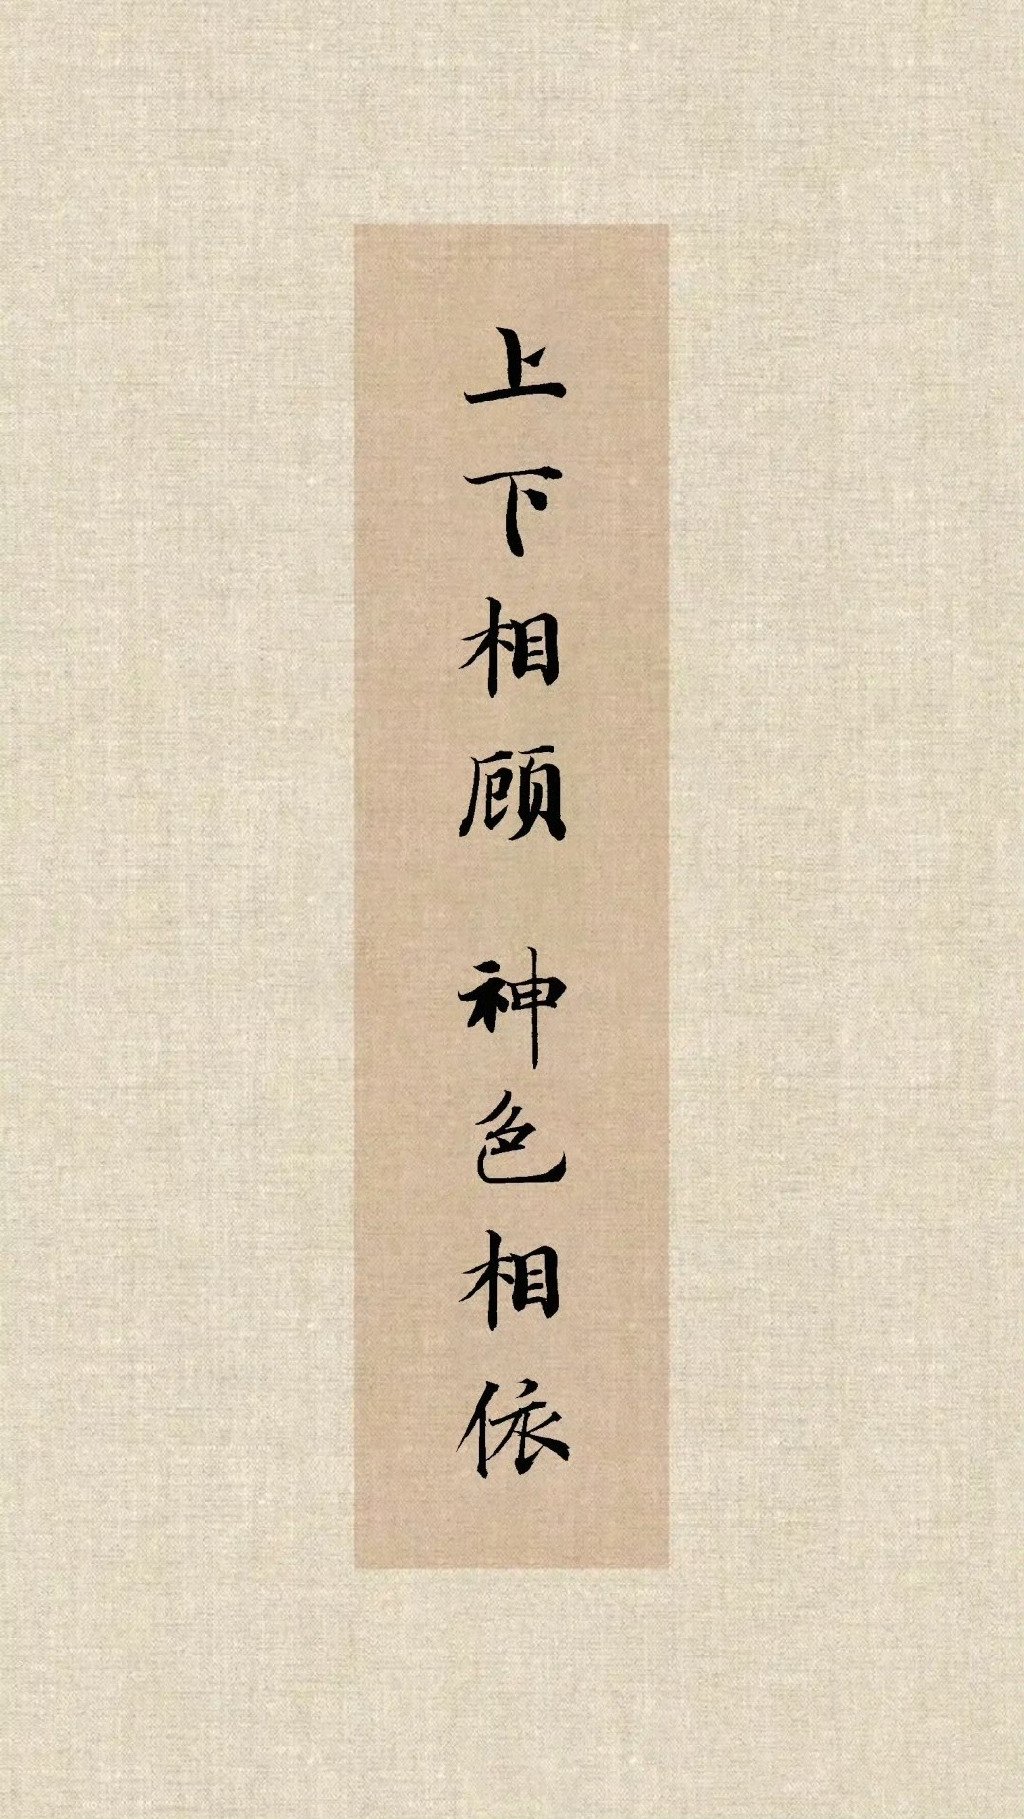 上下相顾 神色相依